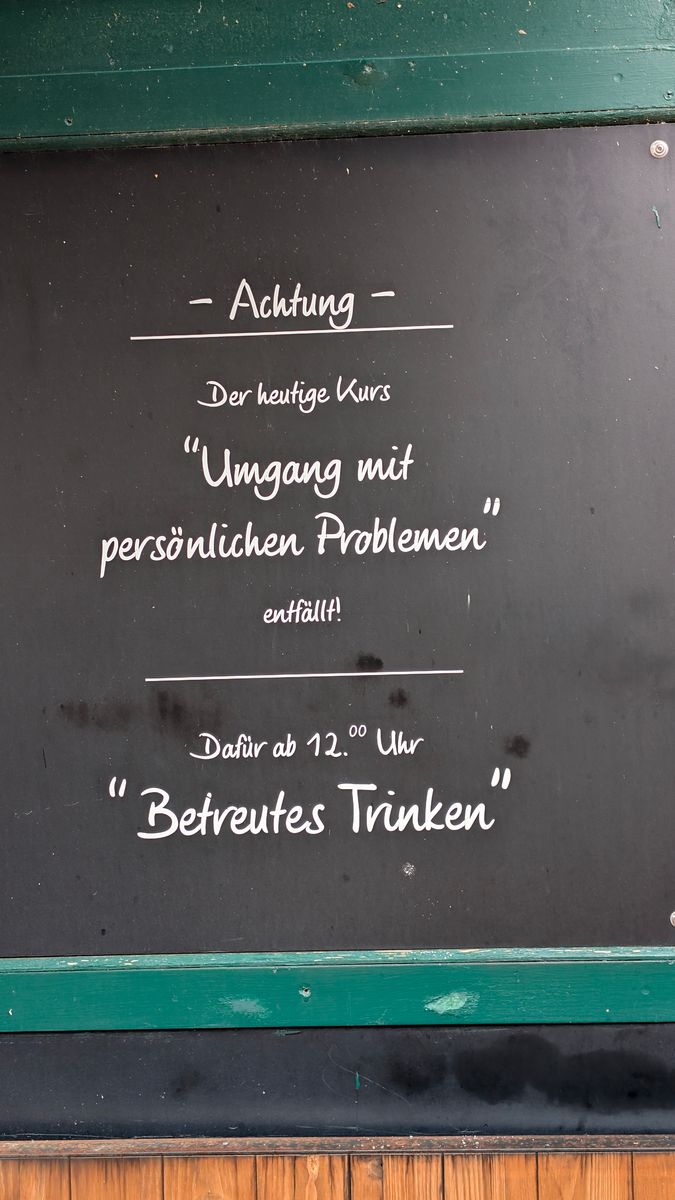 - Achtung -
Der heutige Kurs
"Umgang mit
persönlichen Problemen"
entfällt!
Dafür ab 12.⁰⁰ Uhr
"Betreutes Trinken"